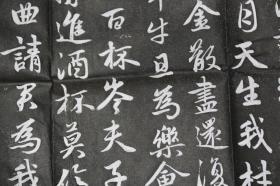 月天生我材
金散盡還復
牛且為樂會
百杯岑夫子
進酒杯莫停
曲請君為我